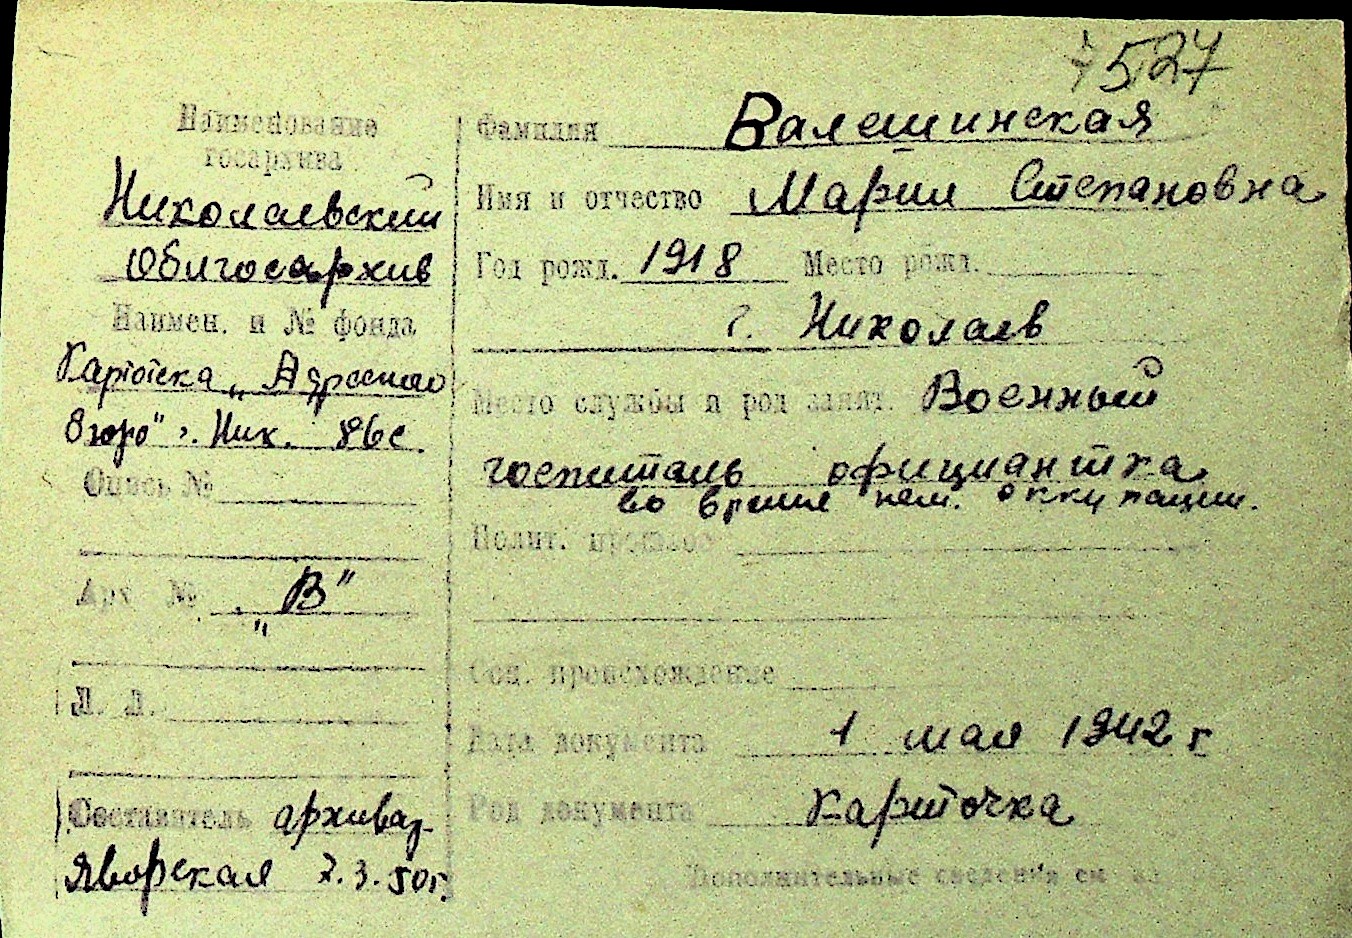 527
Наименование
госархива
Николаевский
Облгосархив
Наимен. и № фонда
Картотека „Адресного
бюро" г. Ник.
Опись №
Арх №
„В"
Л. Л.
Составитель архивар.
Яворская 7.3.50г.
Фамилия Валешинская
Имя и отчество Мария Степановна
Год рожд. 1918 Место рожд.
г. Николаев
Место службы и род занят. Военный
госпиталь официантка
во время нем. оккупации.
Полит. прошлое
Соц. происхождение
Дата документа 1 мая 1942 г
Род документа Карточка
Дополнительные сведения см на